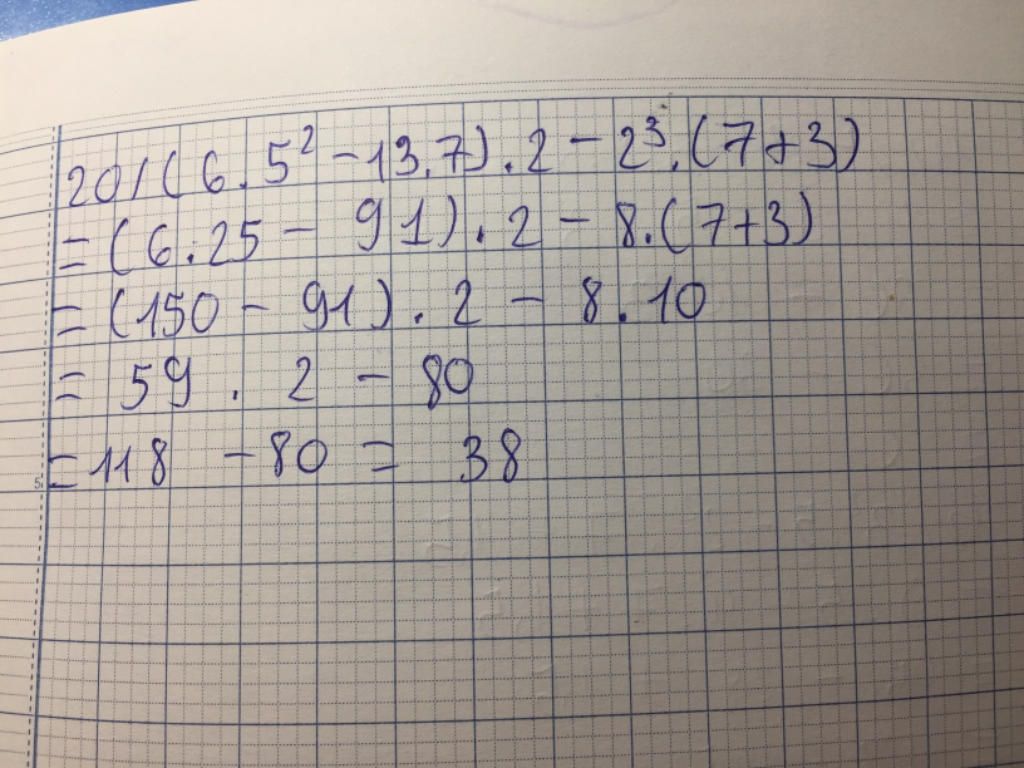 20/(6.5² -13.7).2 - 2³.(7+3)
=(6.25 - 91).2 - 8.(7+3)
=(150 - 91).2 - 8.10
= 59 . 2 - 80
=118 - 80 = 38
5